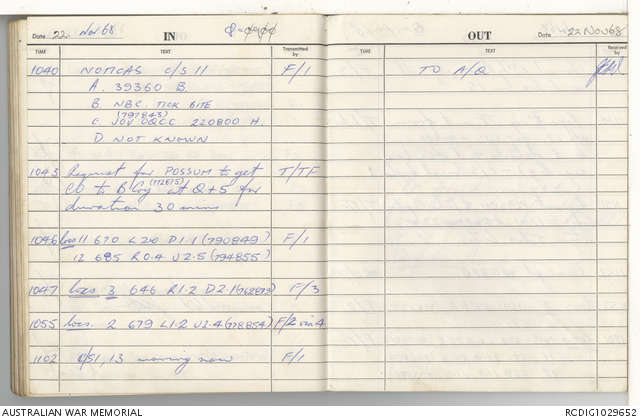 Date 22 Nov 68 IN
TIME TEXT Transmitted by
1040 NOTICAS C/S 11 F/1
A. 39360 B.
B. NBC. TICK BITE
(797843)
C. JOV OQCC 220800 H.
D. NOT KNOWN
1043 Request for POSSUM to get T/TF
CO to B Coy (772875) at Q+5 for
duration 30 mins
1046 locs 11 670 L2.0 D1.1 (790849) F/1
12 685 R0.4 U2.5 (794855)
1047 locs. 3 646 R1.2 D2.1 F/3
1055 locs. 2 679 L1.2 U2.4 (778854) F/2 via 4
1102 13 moving now F/1
OUT Date 22 Nov 68
TIME TEXT Received by
TO A/Q
AUSTRALIAN WAR MEMORIAL RCDIG1029652